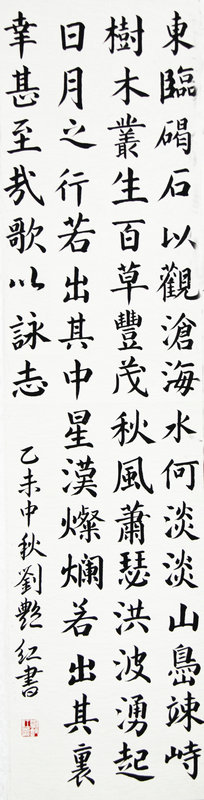 東臨碣石以觀滄海水何淡淡山島竦峙
樹木叢生百草豐茂秋風蕭瑟洪波湧起
日月之行若出其中星漢燦爛若出其裏
幸甚至哉歌以詠志
乙未中秋劉艷紅書